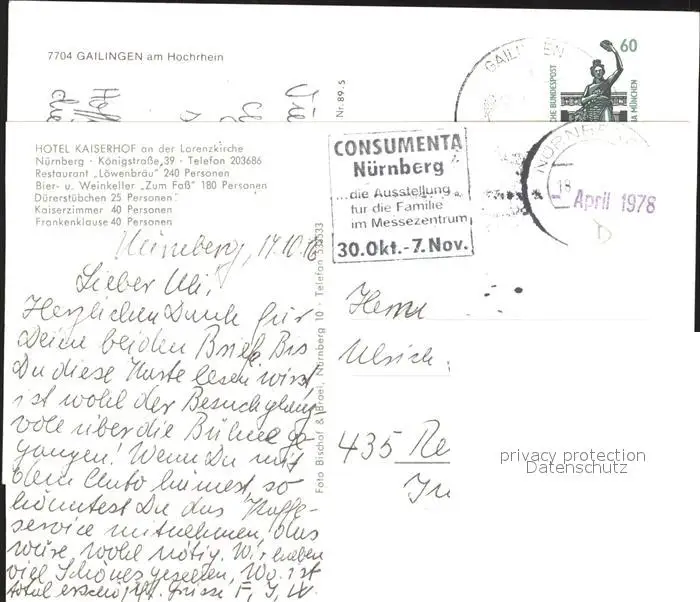 7704 GAILINGEN am Hochrhein
GAILINGEN
60
HE BUNDESPOST
A MÜNCHEN
Nr. 89.5
HOTEL KAISERHOF an der Lorenzkirche
Nürnberg · Königstraße 39 · Telefon 203686
Restaurant „Löwenbräu" 240 Personen
Bier- u. Weinkeller „Zum Faß" 180 Personen
Dürerstübchen 25 Personen
Kaiserzimmer 40 Personen
Frankenklause 40 Personen
CONSUMENTA
Nürnberg
...die Ausstellung
für die Familie
im Messezentrum
30.Okt.-7.Nov.
NÜRNBERG
18
April 1978
Nürnberg, 17.10.
Lieber Uli,
Herzlichen Dank für
Deine beiden Briefe. Bis
Du diese Karte lesen wirst,
ist wohl der Besuch glanz-
voll über die Bühne ge-
gangen! Wenn Du mit
dem Auto kommst, so
könntest Du das Kaffe-
service mitnehmen, das
wäre wohl nötig. Wir haben
viel Schönes gesehen, Wo. ist
total Grüsse F, J, W.
Foto Bischof & Broel, Nürnberg 10 · Telefon
Herrn
Ulrich
435 Re
privacy protection
Datenschutz